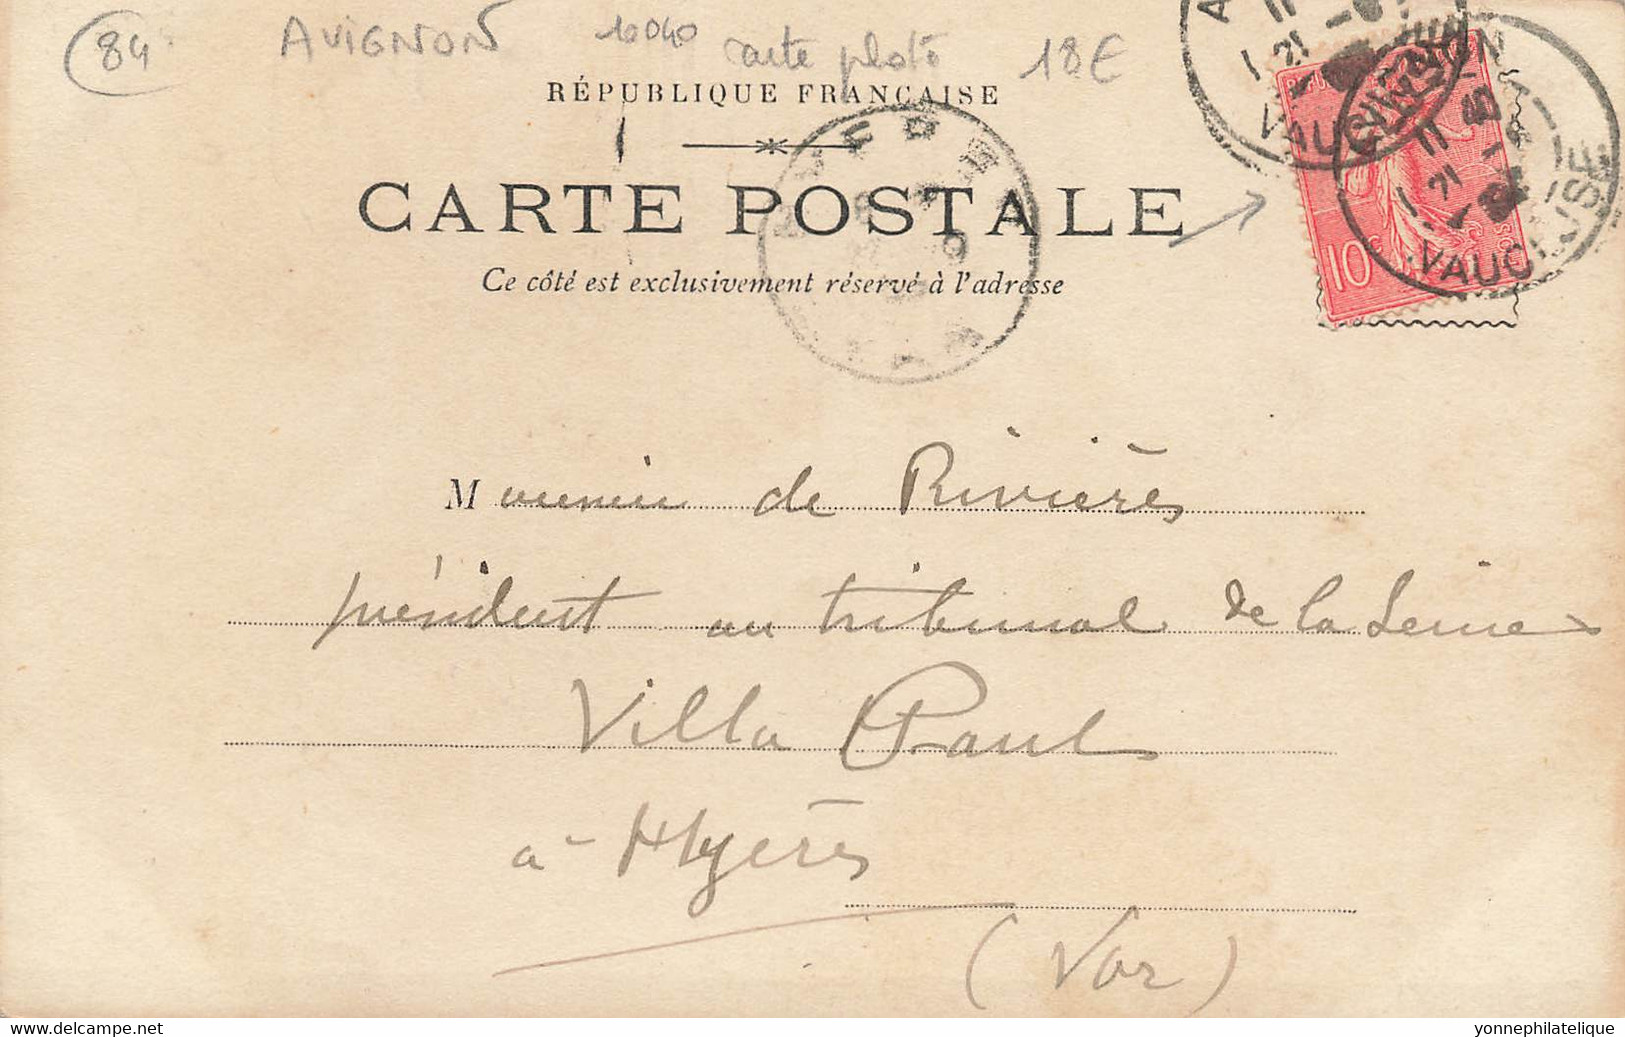 84 AVIGNON 10040 carte photo 18€
RÉPUBLIQUE FRANÇAISE
CARTE POSTALE
Ce côté est exclusivement réservé à l'adresse
10c
VAUCLUSE
VAUCLUSE
Monsieur de Rivières
président au tribunal de la Seine
Villa Paul
à Hyères
(Var)
www.delcampe.net
yonnephilatelique